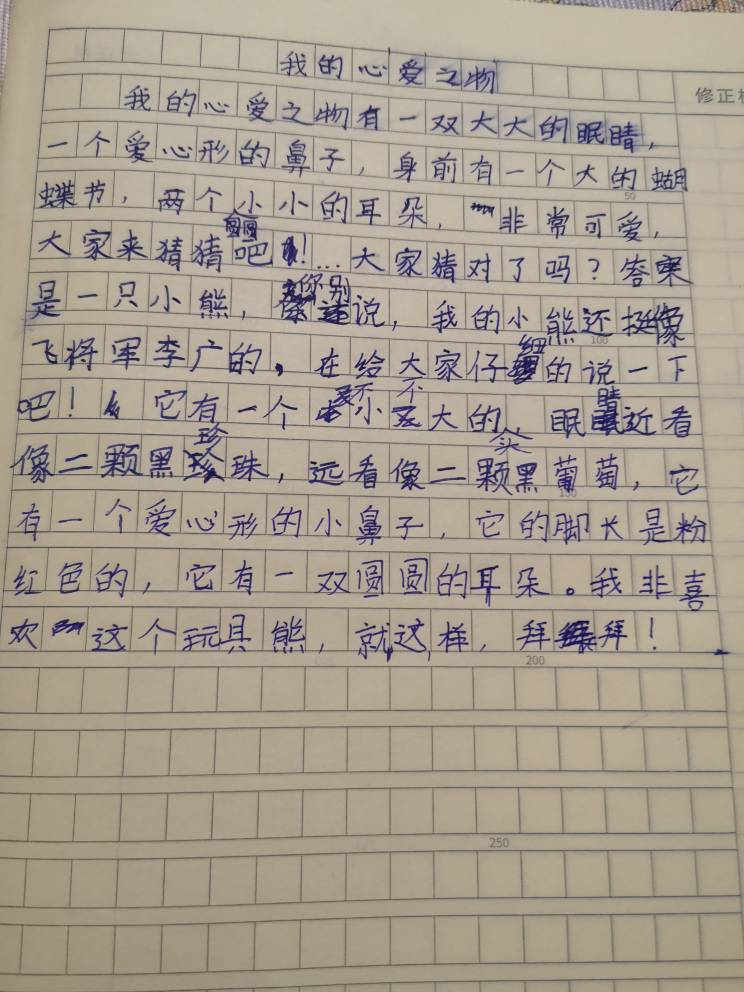 我的心爱之物
修正
我的心爱之物有一双大大的眠睛，
一个爱心形的鼻子，身前有一个大的蝴
50
蝶节，两个小小的耳朵，非常可爱，
大家来猜猜吧！…大家猜对了吗？答案
是一只小熊，你别说，我的小熊还挺像
100
飞将军李广的，在给大家仔细的说一下
吧！它有一个不小不大的头，眠睛近看
像二颗黑珍珠，远看像二颗黑葡萄，它
150
有一个爱心形的小鼻子，它的脚长是粉
红色的，它有一双圆圆的耳朵。我非喜
欢这个玩具熊，就这样，拜拜！
200
250